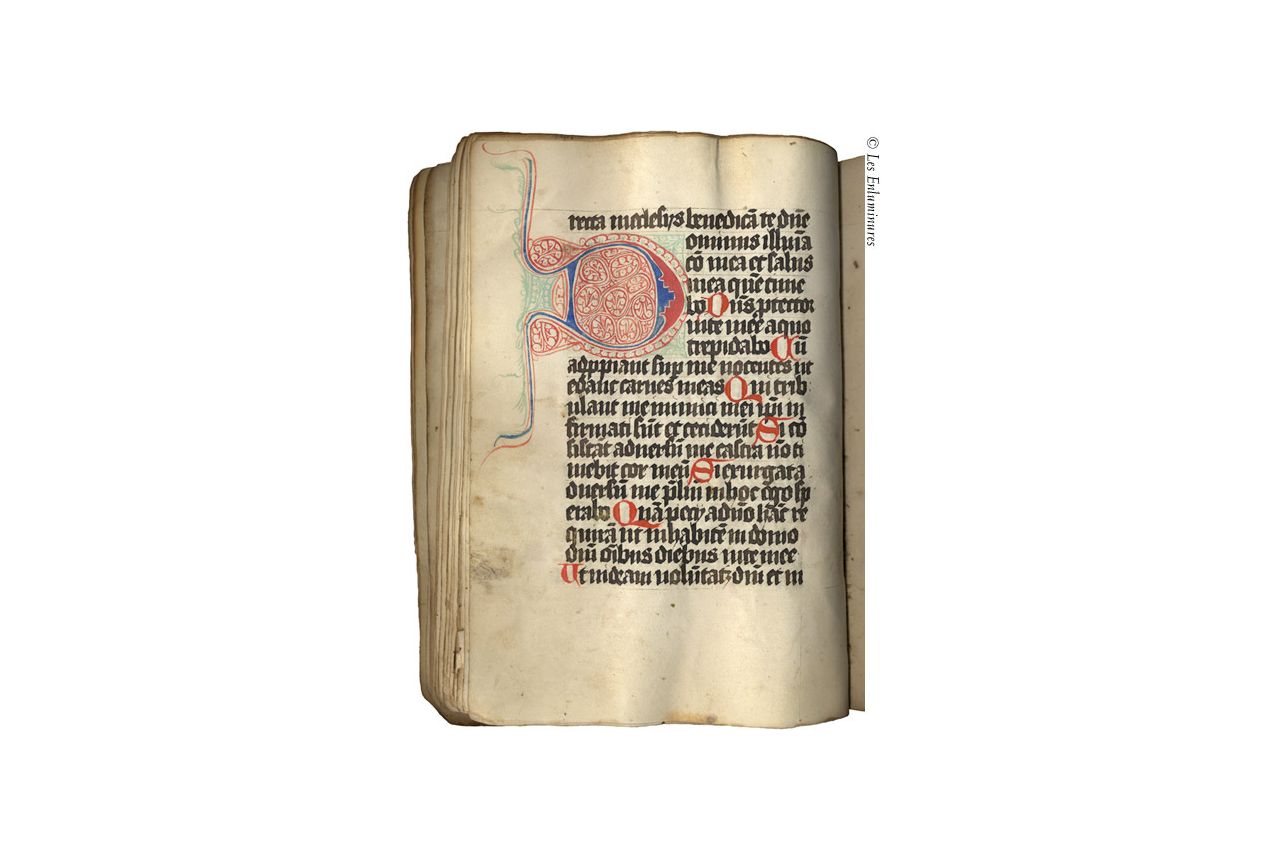 recta in ecclesijs benedicā te dn̄e
Dominus illuīa
cō mea et salus
mea quē time
bo Dn̄s ptector
uite meē aquo
trepidabo Cū
adppiant sup me nocentes ut
edant carnes meas Qui trib
ulant me inimici mei ip̄i in
firmati sūt et ceciderūt Si cō
sistāt adversū me castra nō ti
mebit cor meū Si exurgat a
dversū me p̄liū in hoc ego sp
erabo Unā pecij a dn̄o hāc re
quirā ut inhabitē in domo
dn̄i oībus diebus uite mee
Ut uideam uolūtatē dn̄i et ui
© Les Enluminures